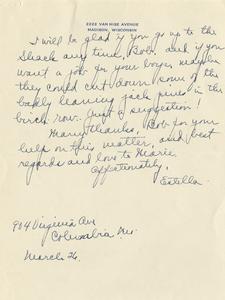 2222 VAN HISE AVENUE
MADISON, WISCONSIN
I will be glad if you go up to the
Shack any time, Bob. and if you
want a job for your boys maybe
they could cut down some of the
badly leaning jack pines in the
birch row. Just a suggestion!
Many thanks, Bob for your
help on this matter, and best
regards and love to Marie.
Affectionately,
Estella.
904 Virginia Ave
Columbia Mo.
March 26.